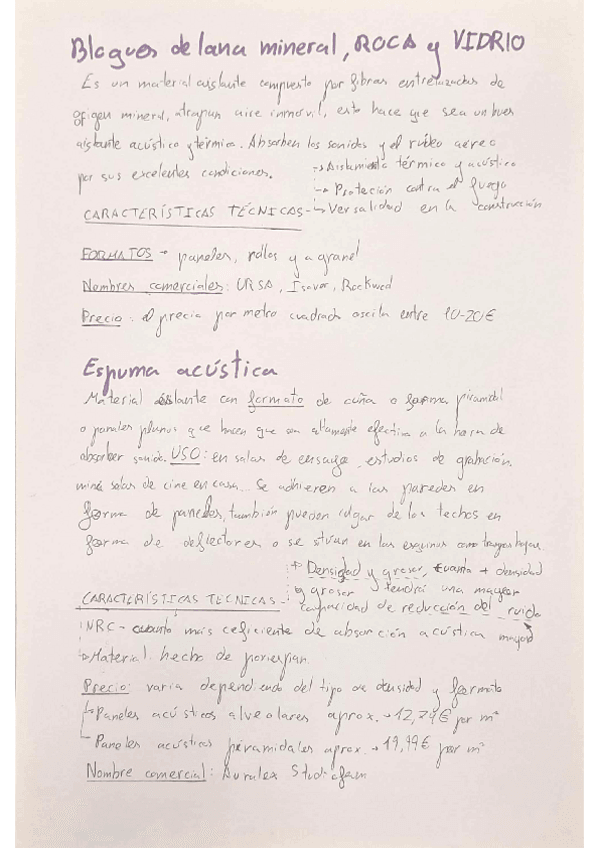 Bloques de lana mineral, ROCA y VIDRIO
Es un material aislante compuesto por fibras entrelazadas de
origen mineral, atrapan aire inmóvil, esto hace que sea un buen
aislante acústico y térmico. Absorben los sonidos y el ruido aéreo
por sus excelentes condiciones.
CARACTERÍSTICAS TÉCNICAS
→ Aislamiento térmico y acústico
→ Proteción contra el fuego
→ Versalidad en la construcción
FORMATOS → paneles, rollos y a granel
Nombres comerciales: URSA, Isover, Rockwool
Precio: el precio por metro cuadrado oscila entre 10-20€
Espuma acústica
Material aislante con formato de cuña o forma piramidal
o paneles planos que hacen que sea altamente efectiva a la hora de
absorber sonido. USO: en salas de ensayo, estudios de grabación,
mini salas de cine en casa... Se adhieren a las paredes en
forma de paneles, también pueden colgar de los techos en
forma de deflectores o se sitúan en las esquinas como trampas
CARACTERÍSTICAS TECNICAS
→ Densidad y grosor, cuanta + densidad
y grosor tendrá una mayor
capacidad de reducción del ruido
NRC - cuanto más coeficiente de absorción acústica mayor
→ Material: hecho de
Precio: varia dependiendo del tipo de densidad y formato
→ Paneles acústicos alveolares aprox. → 12,74€ por m²
Paneles acústicos piramidales aprox. → 19,99€ por m²
Nombre comercial: Auralex Studiofoam